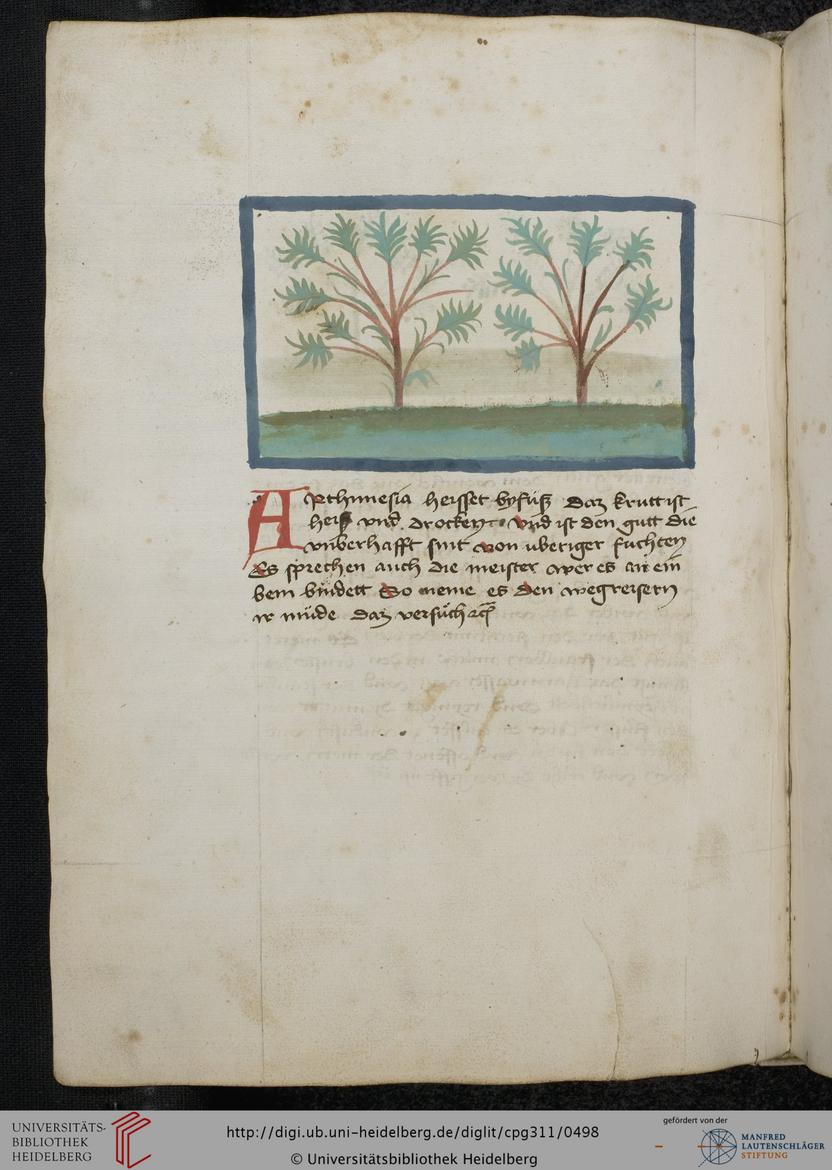 ARthimesia heisset byfuß Daz krutt ist
heiß vnd drocken vnd ist den gutt die
vnberhafft sint von vberiger fuchten
Es sprechen auch die meister wer es an ein
bein bindett So neme es den wegreisern
ir müde Daz versüch
UNIVERSITÄTS-
BIBLIOTHEK
HEIDELBERG
http://digi.ub.uni-heidelberg.de/diglit/cpg311/0498
© Universitätsbibliothek Heidelberg
gefördert von der
MANFRED
LAUTENSCHLÄGER
STIFTUNG